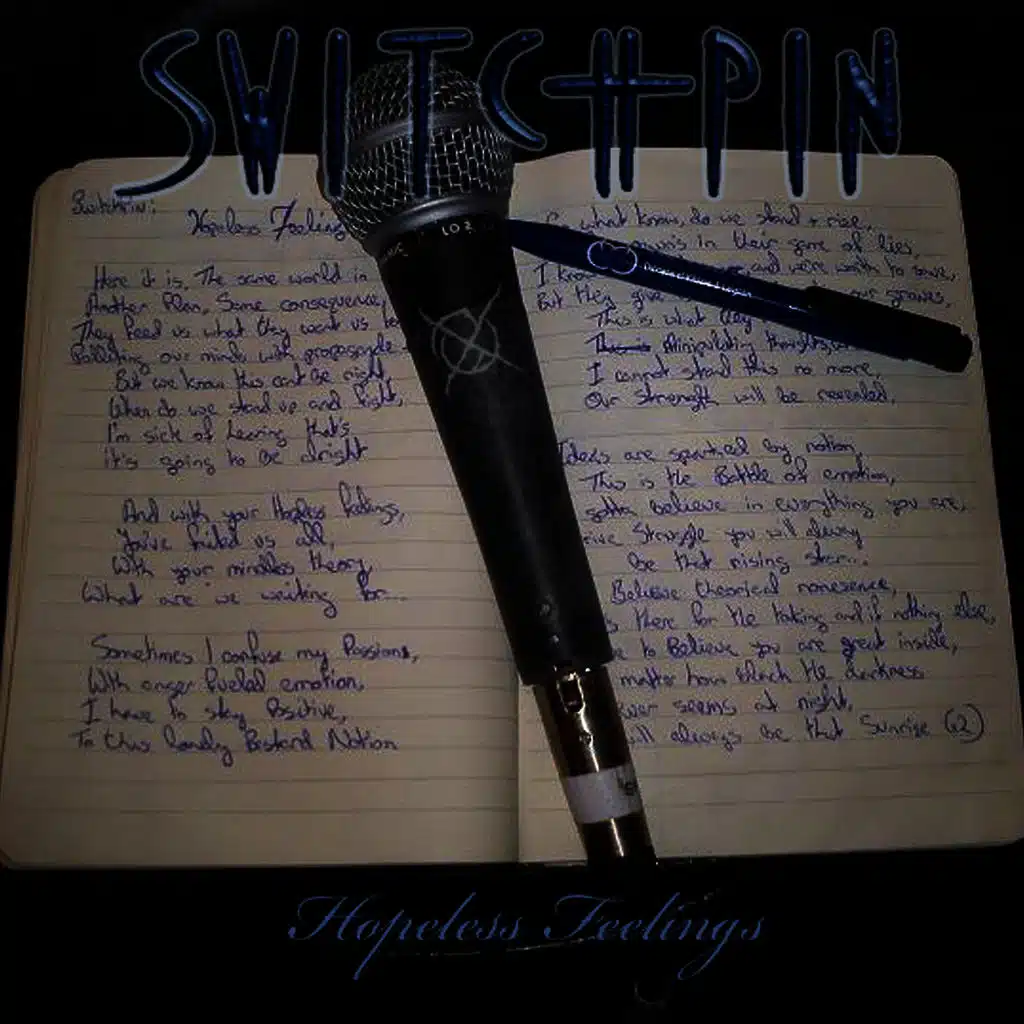 SWITCHPIN
Switchpin:
Hopeless Feeling
Here it is, The same world in
Another Plan, Same consequence,
They feed us what they want us
Polluting our minds with propaganda
But we know this cant be right,
When do we stand up and fight,
I'm sick of hearing that's
it's going to be alright
And with your Hopeless feelings,
You've failed us all,
With your mindless theory,
What are we waiting for...
Sometimes I confuse my Passions,
With anger fueled emotion,
I have to stay Positive,
To this lonely Bastard Notion
what know, do we stand + rise,
in their game of lies,
I know and we're worth to save,
But they give our graves,
This is what they
This is Minipulating thoughts,
I cannot stand this no more,
Our strength will be revealed,
Ideas are sparked by notion,
This is the Battle of emotion,
gotta believe in everything you are,
Struggle you will always
be that rising star...
Believe theorical nonesence,
there for the taking and if nothing else,
to Believe you are great inside,
matter how black the darkness
ever seems at night,
will always be that Sunrise (x2)
LO Z
Hopeless Feelings